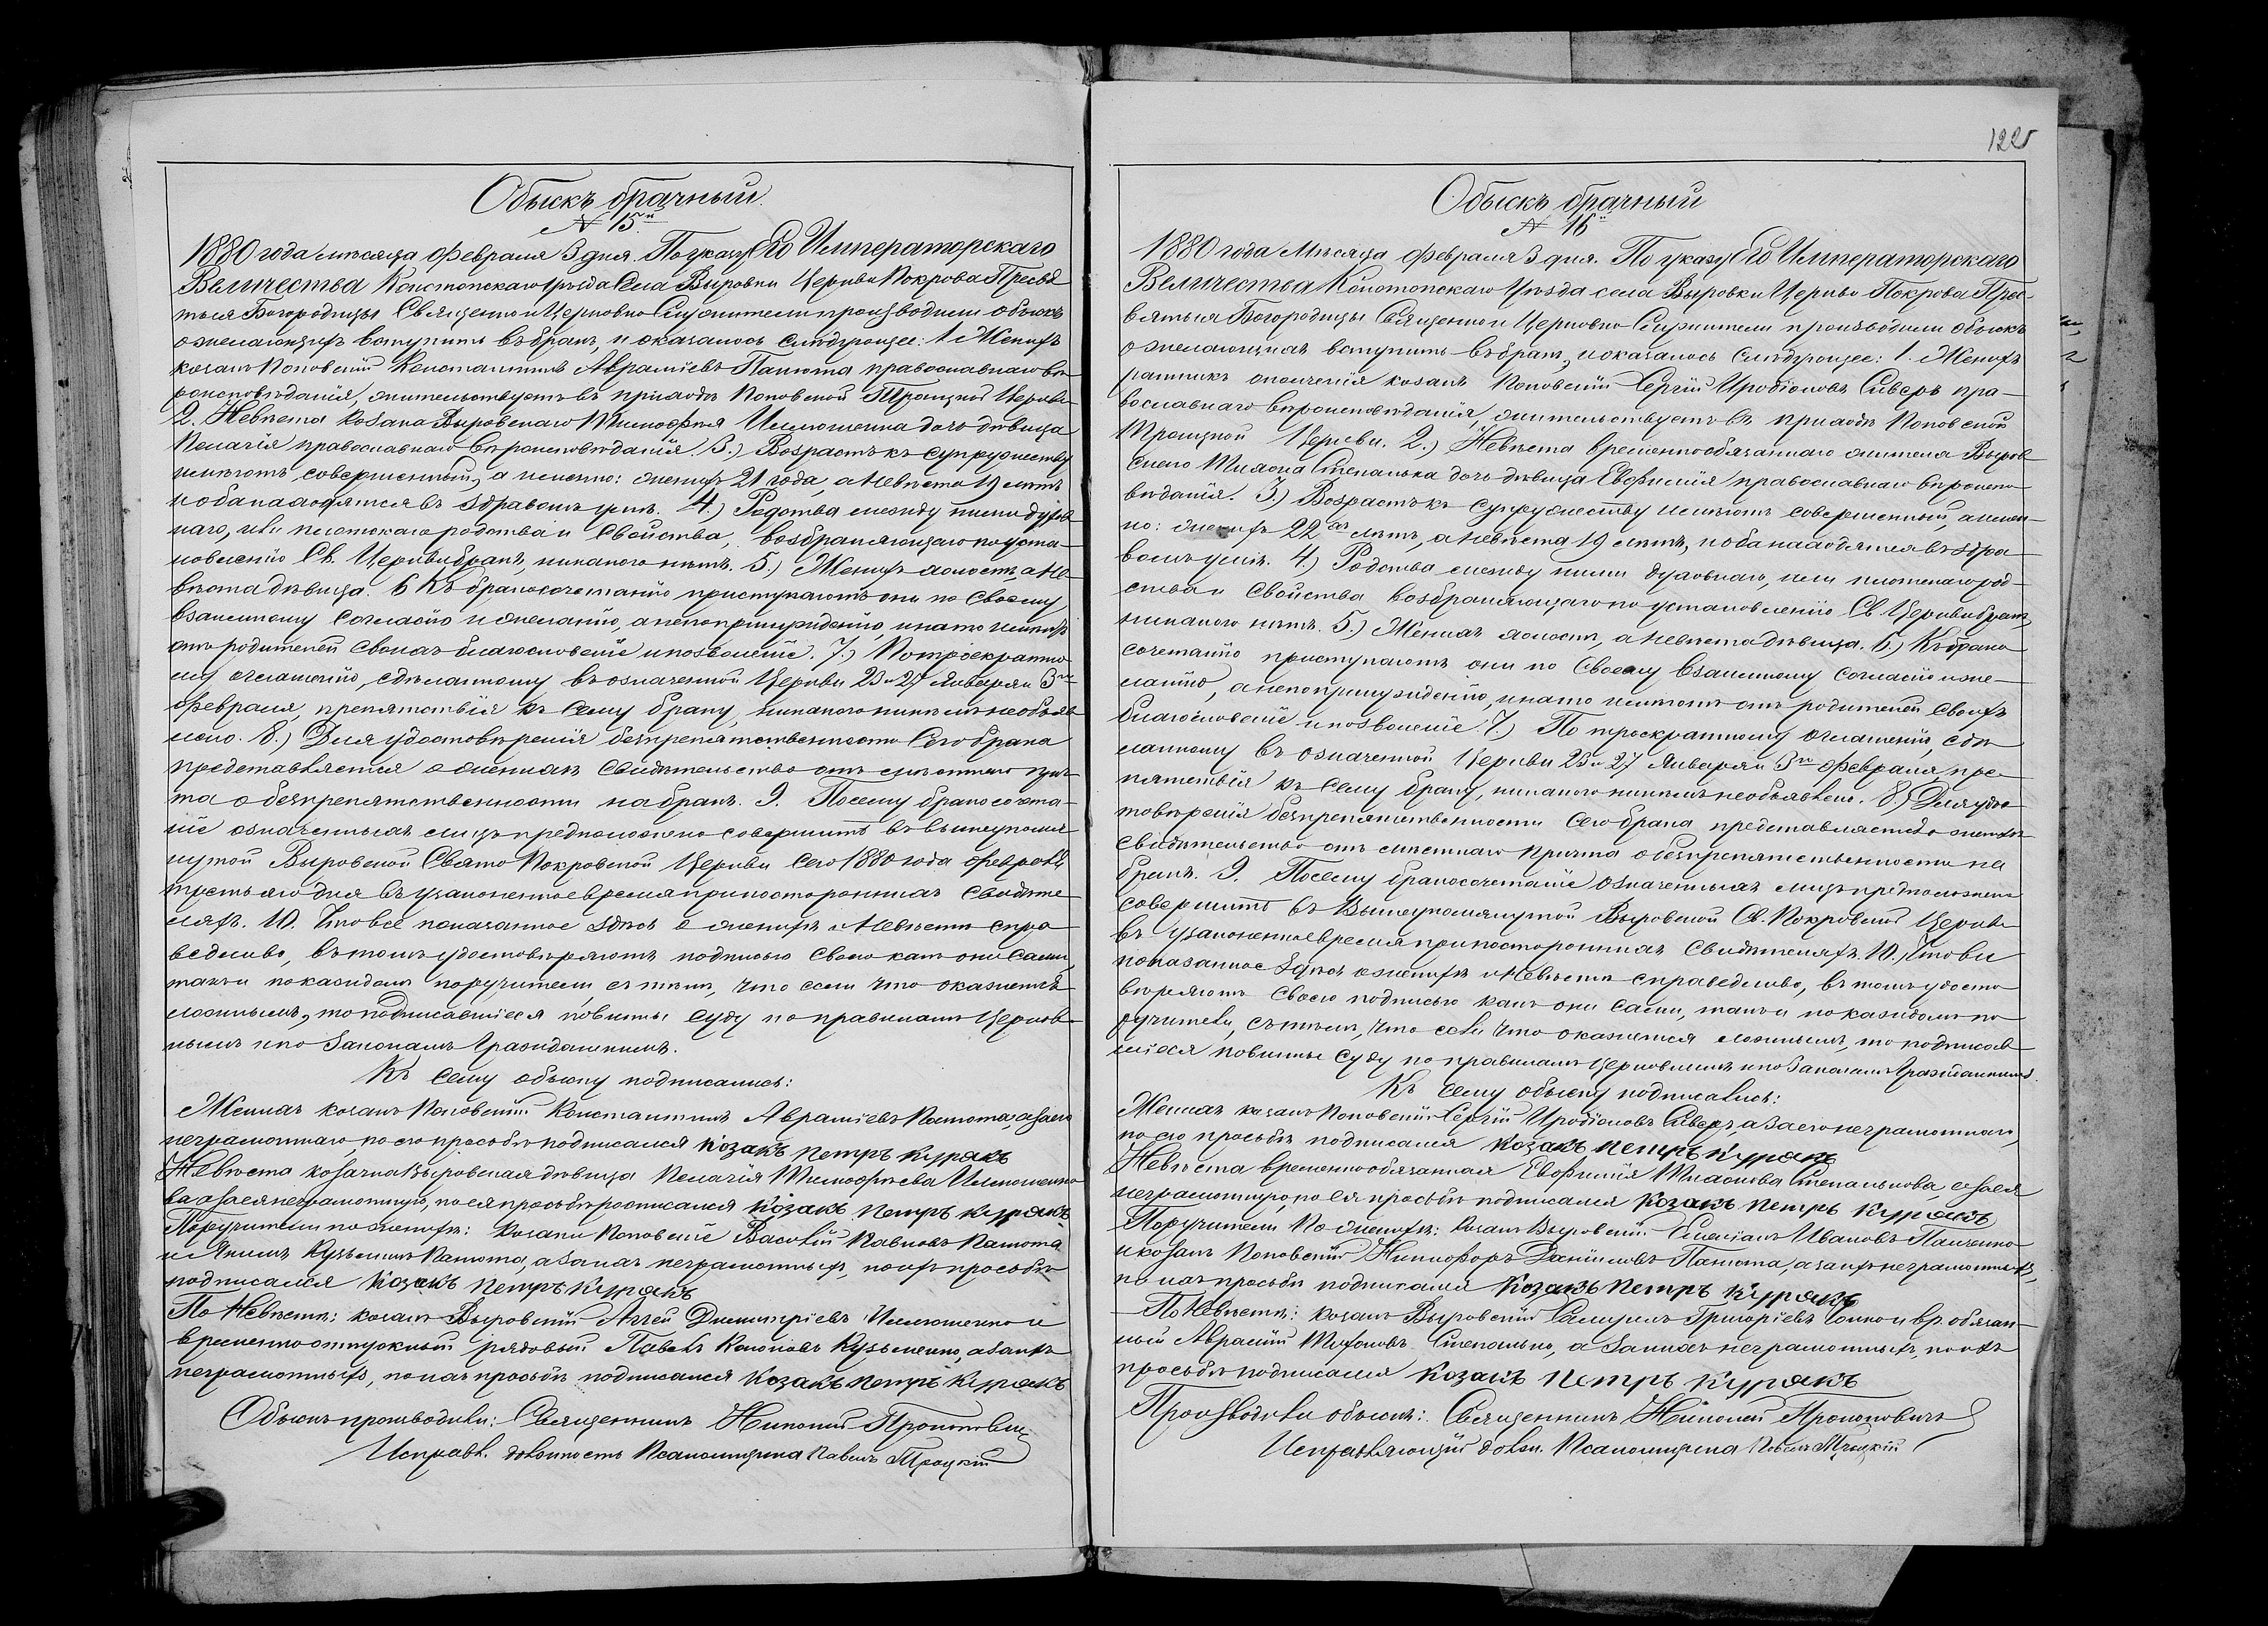 Обыскъ брачный
№ 15й
1880 года мѣсяца Февраля 3 дня. По указу Его Императорскаго
Величества Конотопскаго Уѣзда Села Выровки Церкви Покрова Пресвя
тыя Богородицы Священно и Церковно Служители производили обыскъ
о желающихъ вступить въ бракъ, и оказалось слѣдующее: 1. Женихъ
козакъ Поповскій Константинъ Авраміевъ Панюта православнаго вѣ
роисповѣданія, жительствуетъ въ приходѣ Поповской Троицкой Церкви
2. Невѣста козака Выровскаго Тимофѣя дочь дѣвица
Пелагія православнаго вѣроисповѣданія. 3.) Возрастъ къ супружеству
имѣютъ совершенный, а именно: женихъ 21 года, а невѣста 19 лѣтъ
и оба находятся въ здравомъ умѣ. 4.) Родства между ними духов
наго, или плотскаго родства и свойства, возбраняющаго по уста
новленію Св. Церкви бракъ, никакого нѣтъ. 5.) Женихъ холостъ, а не
вѣста дѣвица. 6 Къ бракосочетанію приступаютъ они по своему
взаимному согласію и желанію, а не по принужденію, и на то имѣютъ
отъ родителей своихъ благословеніе и позволеніе. 7.) По троекратно
му оглашенію, сдѣланному въ означенной Церкви 25 и 27 Января и 3го
Февраля, препятствія къ сему браку, никакого никѣмъ не объяв
лено. 8.) Для удостовѣренія безпрепятственности сего брака
представляется о женихѣ свидѣтельство отъ мѣстнаго прич
та о безпрепятственности на бракъ. 9. Посему бракосочета
ніе означенныхъ лицъ предположено совершить въ вышеупомя
нутой Выровской Свято Покровской Церкви сего 1880 года Февраля
третьяго дня въ узаконенное время при постороннихъ свидѣте
ляхъ. 10. Что все показанное здѣсь о женихѣ и невѣстѣ спра
ведливо, въ томъ удостовѣряютъ подписью своею какъ они сами,
такъ и по каждомъ поручители, съ тѣмъ, что если что окажется
ложнымъ, то подписавшіеся повинны суду по правиламъ Церков
нымъ и по Законамъ Гражданскимъ.
Къ сему обыску подписались:
Женихъ козакъ Поповскій Константинъ Авраміевъ Панюта, а за его
неграмотнаго, по его просьбѣ подписался Козакъ Петръ Курякъ
Невѣста козачка Выровская дѣвица Пелагія Тимофѣева
а за ея неграмотную, по ея просьбѣ росписался Козакъ Петръ Курякъ
Поручители по женихѣ: козаки Поповскіе Василій Павловъ Панюта
и Якимъ Кузьминъ Панюта, а за ихъ неграмотныхъ, по ихъ просьбѣ
подписался Козакъ Петръ Курякъ
По Невѣстѣ: козакъ Выровскій Дмитріевъ и
временноотпускный рядовый Павелъ Кононовъ Кузьменко, а за ихъ
неграмотныхъ, по ихъ просьбѣ подписался Козакъ Петръ Курякъ
Обыскъ производили: Священникъ Николай Прокоповичъ
Исправл. должность Псаломщика Павелъ Троцкій
122
Обыскъ брачный
№ 16й
1880 года Мѣсяца Февраля 3 дня. По указу Его Императорскаго
Величества Конотопскаго Уѣзда села Выровки Церкви Покрова Прес-
вятыя Богородицы Священно и Церковно Служители производили обыскъ
о желающихъ вступить въ бракъ, и оказалось слѣдующее: 1. Женихъ
ратникъ ополченія козакъ Поповскій Сергій Иродіоновъ Сиверъ пра-
вославнаго вѣроисповѣданія, жительствуетъ въ приходѣ Поповской
Троицкой Церкви. 2.) Невѣста временнообязаннаго жителя Выров
скаго Тихона Степанька дочь дѣвица Евфимія православнаго вѣроиспо
вѣданія. 3.) Возрастъ къ супружеству имѣютъ совершенный, а имен-
но: женихъ 22хъ лѣтъ, а невѣста 19 лѣтъ, и оба находятся въ здра
вомъ умѣ. 4.) Родства между ними духовнаго, или плотскаго род-
ства и свойства возбраняющаго по установленію Св. Церкви бракъ,
никакого нѣтъ. 5.) Женихъ холостъ, а невѣста дѣвица. 6.) Къ брако
сочетанію приступаютъ они по своему взаимному согласію и же-
ланію, а не по принужденію, и на то имѣютъ отъ родителей своихъ
благословеніе и позволеніе. 7.) По троекратному оглашенію, сдѣ
ланному въ означенной Церкви 25 и 27 Января и 3го Февраля, пре-
пятствія къ сему браку, никакого никѣмъ не объявлено. 8.) Для удос
товѣренія безпрепятственности сего брака представляется о женихѣ
свидѣтельство отъ мѣстнаго Причта о безпрепятственности на
бракъ. 9. Посему бракосочетаніе означенныхъ лицъ предположено
совершить въ вышеупомянутой Выровской Св. Покровской Церкви
въ узаконенное время при постороннихъ свидѣтеляхъ. 10.) Что все
показанное здѣсь о женихѣ и невѣстѣ справедливо, въ томъ удосто
вѣряютъ своею подписью какъ они сами, такъ и по каждомъ по
ручители, съ тѣмъ, что если что окажется ложнымъ, то подписав
шіеся повинны суду по правиламъ Церковнымъ и по Законамъ Гражданскимъ.
Къ сему обыску подписались:
Женихъ козакъ Поповскій Сергій Иродіоновъ Сиверъ, а за его неграмотнаго,
по его просьбѣ подписался Козакъ Петръ Курякъ
Невѣста временнообязанная Евфимія Тихонова Степанькова, а за ея
неграмотную, по ея просьбѣ подписался Козакъ Петръ Курякъ
Поручители по женихѣ: козакъ Выровскій Симеіанъ Ивановъ Панченко
и козакъ Поповскій Никифоръ Даніиловъ Панюта, а за ихъ неграмотныхъ,
по ихъ просьбѣ подписался Козакъ Петръ Курякъ
По Невѣстѣ: козакъ Выровскій Самуилъ Григоріевъ и вр. обязан-
ный Аврамій Тихоновъ Степанько, а за нихъ неграмотныхъ, по ихъ
просьбѣ подписался Козакъ Петръ Курякъ
Производили обыскъ: Священникъ Николай Прокоповичъ
Исправляющій должн. Псаломщика Павелъ Троцкій